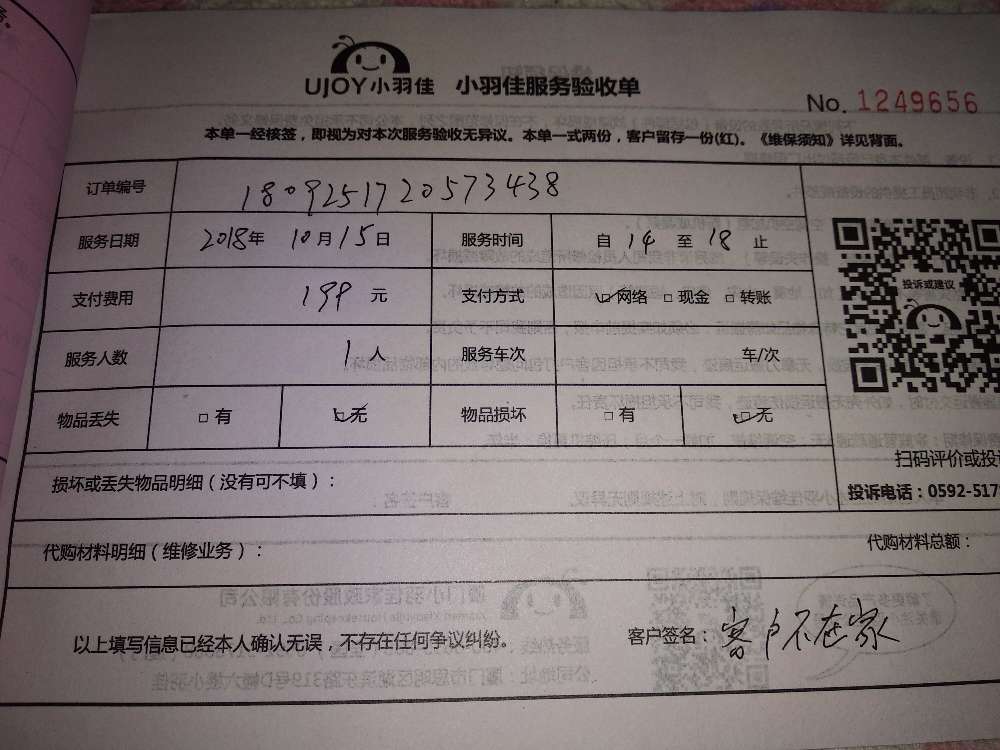 务。
UJOY小羽佳 小羽佳服务验收单
No. 1249656
本单一经核签，即视为对本次服务验收无异议。本单一式两份，客户留存一份(红)。《维保须知》详见背面。
订单编号 1809251720573438
服务日期 2018年 10月15日 服务时间 自 14 至 18 止
支付费用 199 元 支付方式 网络 □现金 □转账
投诉或建议
服务人数 1人 服务车次 车/次
物品丢失 □有 无 物品损坏 □有 无
扫码评价或投
损坏或丢失物品明细（没有可不填）：
投诉电话：0592-517
代购材料明细（维修业务）： 代购材料总额：
以上填写信息已经本人确认无误，不存在任何争议纠纷。 客户签名：客户不在家